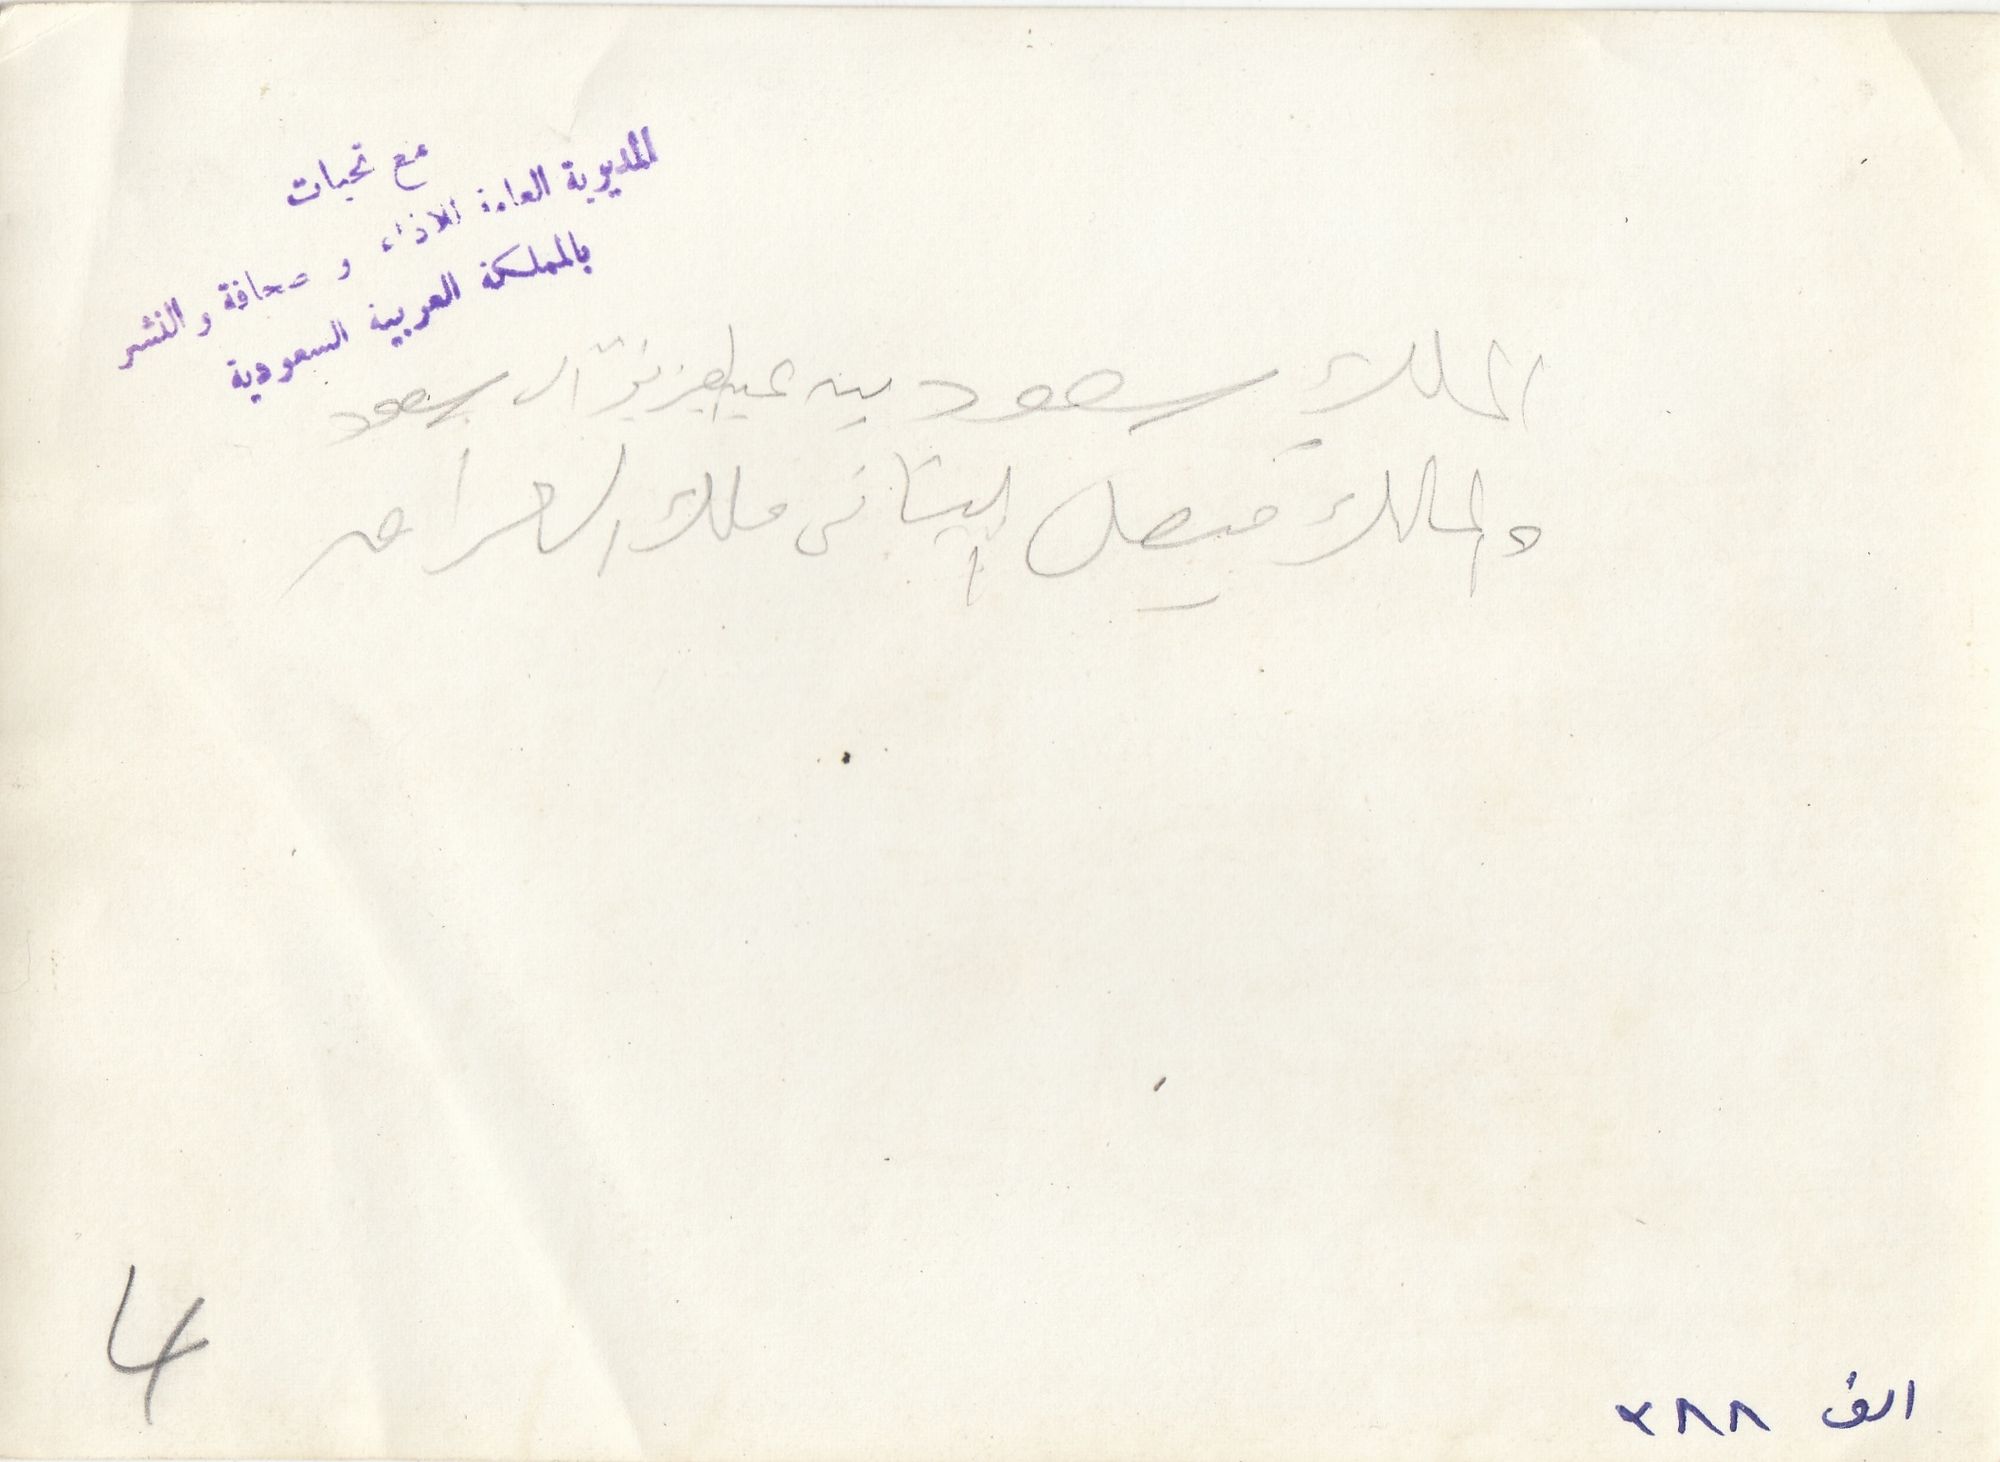 مع تحيات
المديرية العامة للاذاعة و صحافة والنشر
بالمملكة العربية السعودية
الملك سعود بن عبدالعزيز آل سعود
والمالك فيصل الثاني ملك العراق
4
الف ٣٨٨